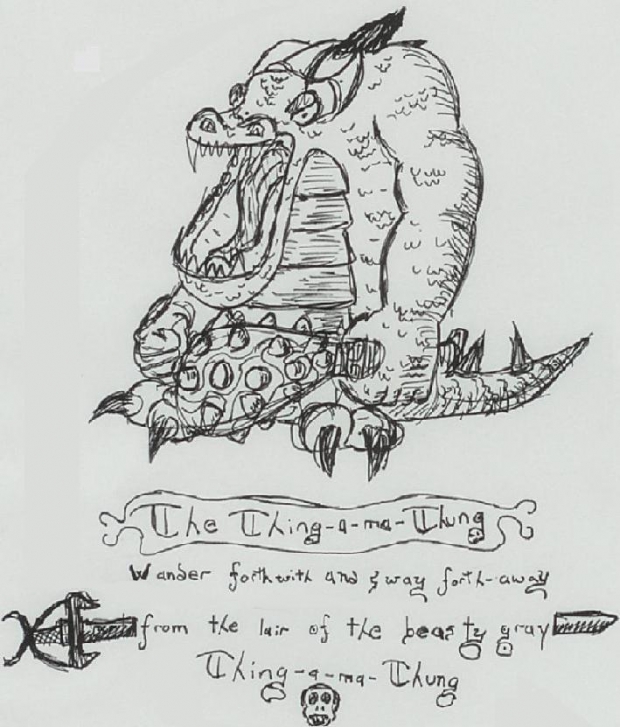 The Thing-a-ma-Thung
Wander forthwith and sway forth-away
from the lair of the beasty gray
Thing-a-ma-Thung